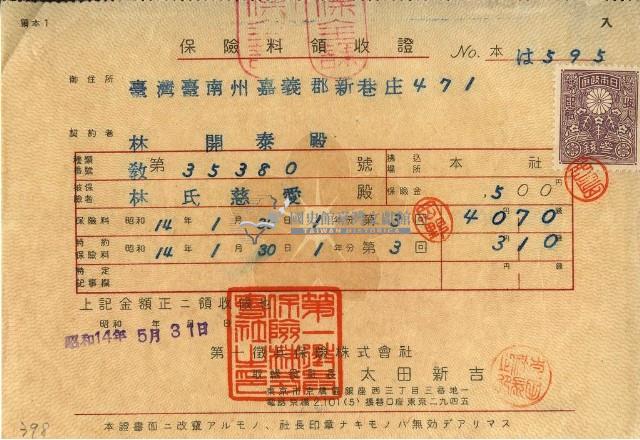 領本1
入
保險料領收證
No. 本 は595
御住所 臺灣臺南州嘉義郡新巷庄471
契約者 林開泰殿
種類番號 教第35380號 拂込 本社
被保險者 林氏慈愛殿 保險金 500
保險料 昭和14年1月30日1年分第3回 4070
特約保險料 昭和14年1月30日1年分第3回 310
特定記事欄
國史館臺灣文獻館
TAIWAN HISTORICA
上記金額正ニ領收候也
昭和 年 月 日
昭和14年5月31日
第一徵兵保險株式會社
太田新吉
東京市京橋區銀座西三丁目三番地一
電話京橋2,101(5) 振替口座東京二九四五
398
本證書面ニ改竄アルモノ、社長印章ナキモノハ無効デアリマス